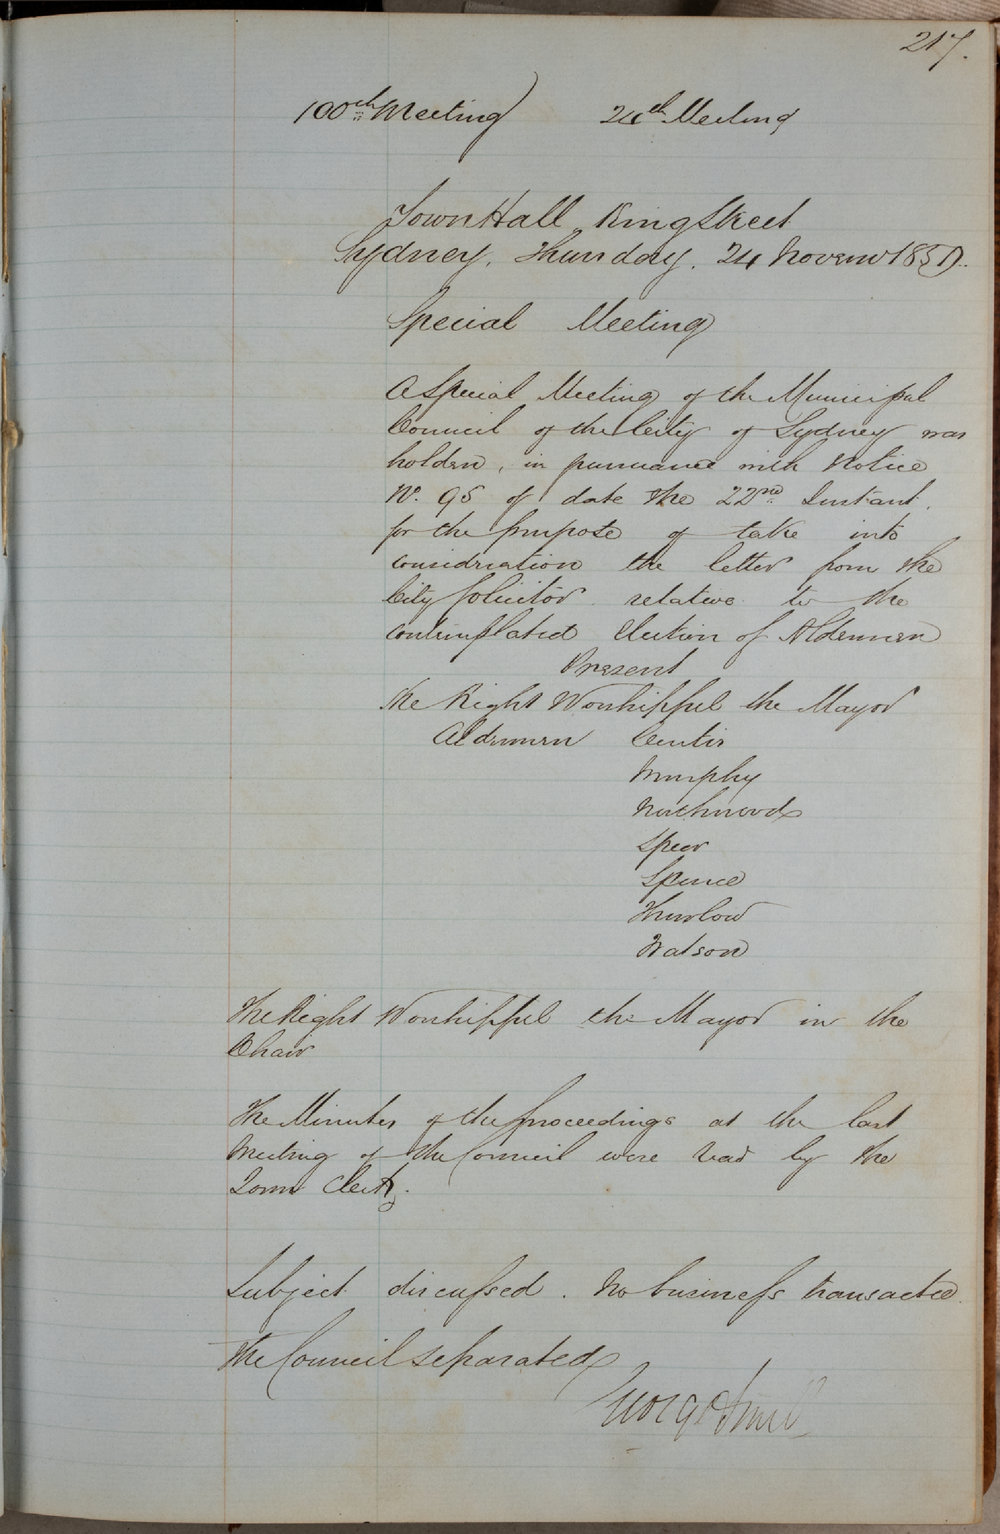 217.
100th Meeting 24th Meeting
Town Hall King Street
Sydney. Thursday. 24 Novemr 1859.
Special Meeting
A Special Meeting of the Municipal
Council of the City of Sydney was
holden, in pursuance with Notice
No. 95 of date the 22nd Instant.
for the purpose of take into
consideration the letter from the
City Solicitor relative to the
contemplated Election of Aldermen
Present
The Right Worshipful the Mayor
Aldermen Curtis
Murphy
Northwood
Speer
Spence
Thurlow
Watson
The Right Worshipful the Mayor in the
Chair
The Minutes of the proceedings at the last
Meeting of the Council were read by the
Town Clerk.
Subject discussed. No business transacted
The Council separated
George Smith